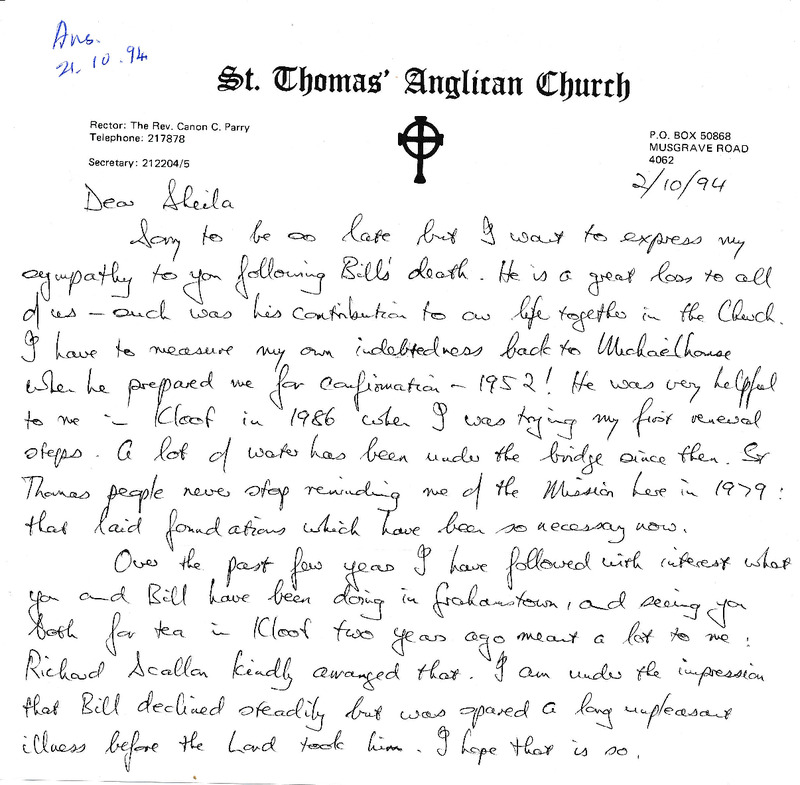 Ans.
21.10.94
St. Thomas' Anglican Church
Rector: The Rev. Canon C. Parry
Telephone: 217878
Secretary: 212204/5
P.O. BOX 50868
MUSGRAVE ROAD
4062
2/10/94
Dear Sheila
Sorry to be so late but I want to express my
sympathy to you following Bill's death. He is a great loss to all
of us – such was his contribution to our life together in the Church.
I have to measure my own indebtedness back to Michaelhouse
when he prepared me for confirmation – 1952! He was very helpful
to me in Kloof in 1986 when I was trying my first renewal
steps. A lot of water has been under the bridge since then. St
Thomas people never stop reminding me of the Mission here in 1979:
that laid foundations which have been so necessary now.
Over the past few years I have followed with interest what
you and Bill have been doing in Grahamstown, and seeing you
both for tea in Kloof two years ago meant a lot to me:
Richard Scallan kindly arranged that. I am under the impression
that Bill declined steadily but was spared a long unpleasant
illness before the Lord took him. I hope that is so.